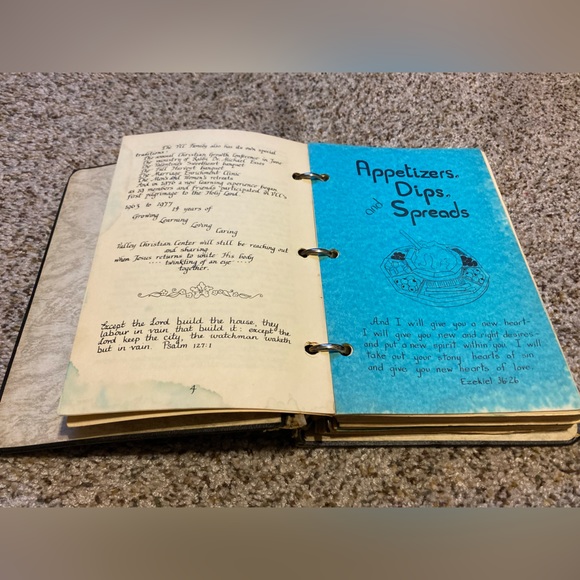 The VCC Family also has its own special
traditions:
The annual Christian Growth Conference in June
The ministry of Rabbi Dr. Michael Esses
The Valentine's Sweetheart banquet
The Fall Harvest banquet
The Marriage Enrichment Clinic
The Men's and Women's retreats
And in 1976 a new learning experience began
as 23 members and friends participated in VCC's
first pilgrimage to the Holy Land.
1963 to 1977
14 years of
Growing
Learning
Loving
Caring
Valley Christian Center will still be reaching out
and sharing
when Jesus returns to unite His body
.... twinkling of an eye ....
together.
Except the Lord build the house, they
labour in vain that build it: except the
Lord keep the city, the watchman waketh
but in vain. Psalm 127:1
4
Appetizers,
Dips,
and Spreads
And I will give you a new heart-
I will give you new and right desires-
and put a new spirit within you. I will
take out your stony hearts of sin
and give you new hearts of love.
Ezekiel 36:26